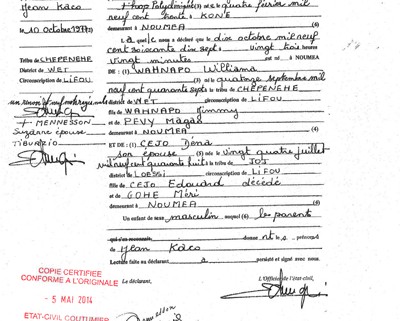 Jean Kaco
le 10 octobre 1977
Tribu de CHEPENEHE
District de WET
Circonscription de LIFOU
+ MENNESSON
Suzanne épouse
TIBURZIO
quatre février mil
neuf cent trente : KONE
demeurant à NOUMEA (4)
A quelle nous a déclaré que le dix octobre mil neuf
cent soixante dix sept : vingt trois heures
vingt minutes est né à NOUMEA
DE : (1) WAHNAPO William
(3) né le quatorze septembre mil
neuf cent quarante sept à la tribu de CHEPENEHE
district de WET circonscription de LIFOU
fils de WAHNAPO Jimmy
et de PEVY Magaë
demeurant à NOUMEA (4)
ET DE : (1) CEJO Déna
son épouse (3) née le vingt quatre juillet
mil neuf cent quarante huit à la tribu de JOJ
district de LOESSI circonscription de LIFOU
fille de CEJO Edouard décédé
et de GOHE Méri
demeurant à NOUMEA (4)
Un enfant de sexe masculin auquel (6) le parent
qui s'en reconnaît donne nt le s prénom s
de Jean Kaco
Lecture faite au déclarant, a persisté et signé avec nous.
Le déclarant,
L'Officier de l'état-civil,
COPIE CERTIFIEE
CONFORME A L'ORIGINALE
- 5 MAI 2014
ETAT-CIVIL COUTUMIER